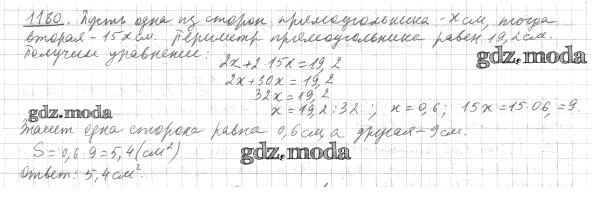 1160. Пусть одна из сторон прямоугольника - x см, тогда
вторая - 15x см. Периметр прямоугольника равен 19,2 см.
Получим уравнение:
gdz.moda
2x+2·15x=19,2
2x+30x=19,2
32x=19,2
gdz.moda
x=19,2:32 ; x=0,6; 15x=15·06,=9.
Значит одна сторона равна 0,6 см, а другая - 9 см.
S=0,6·9=5,4(см²)
gdz.moda
Ответ: 5,4 см².